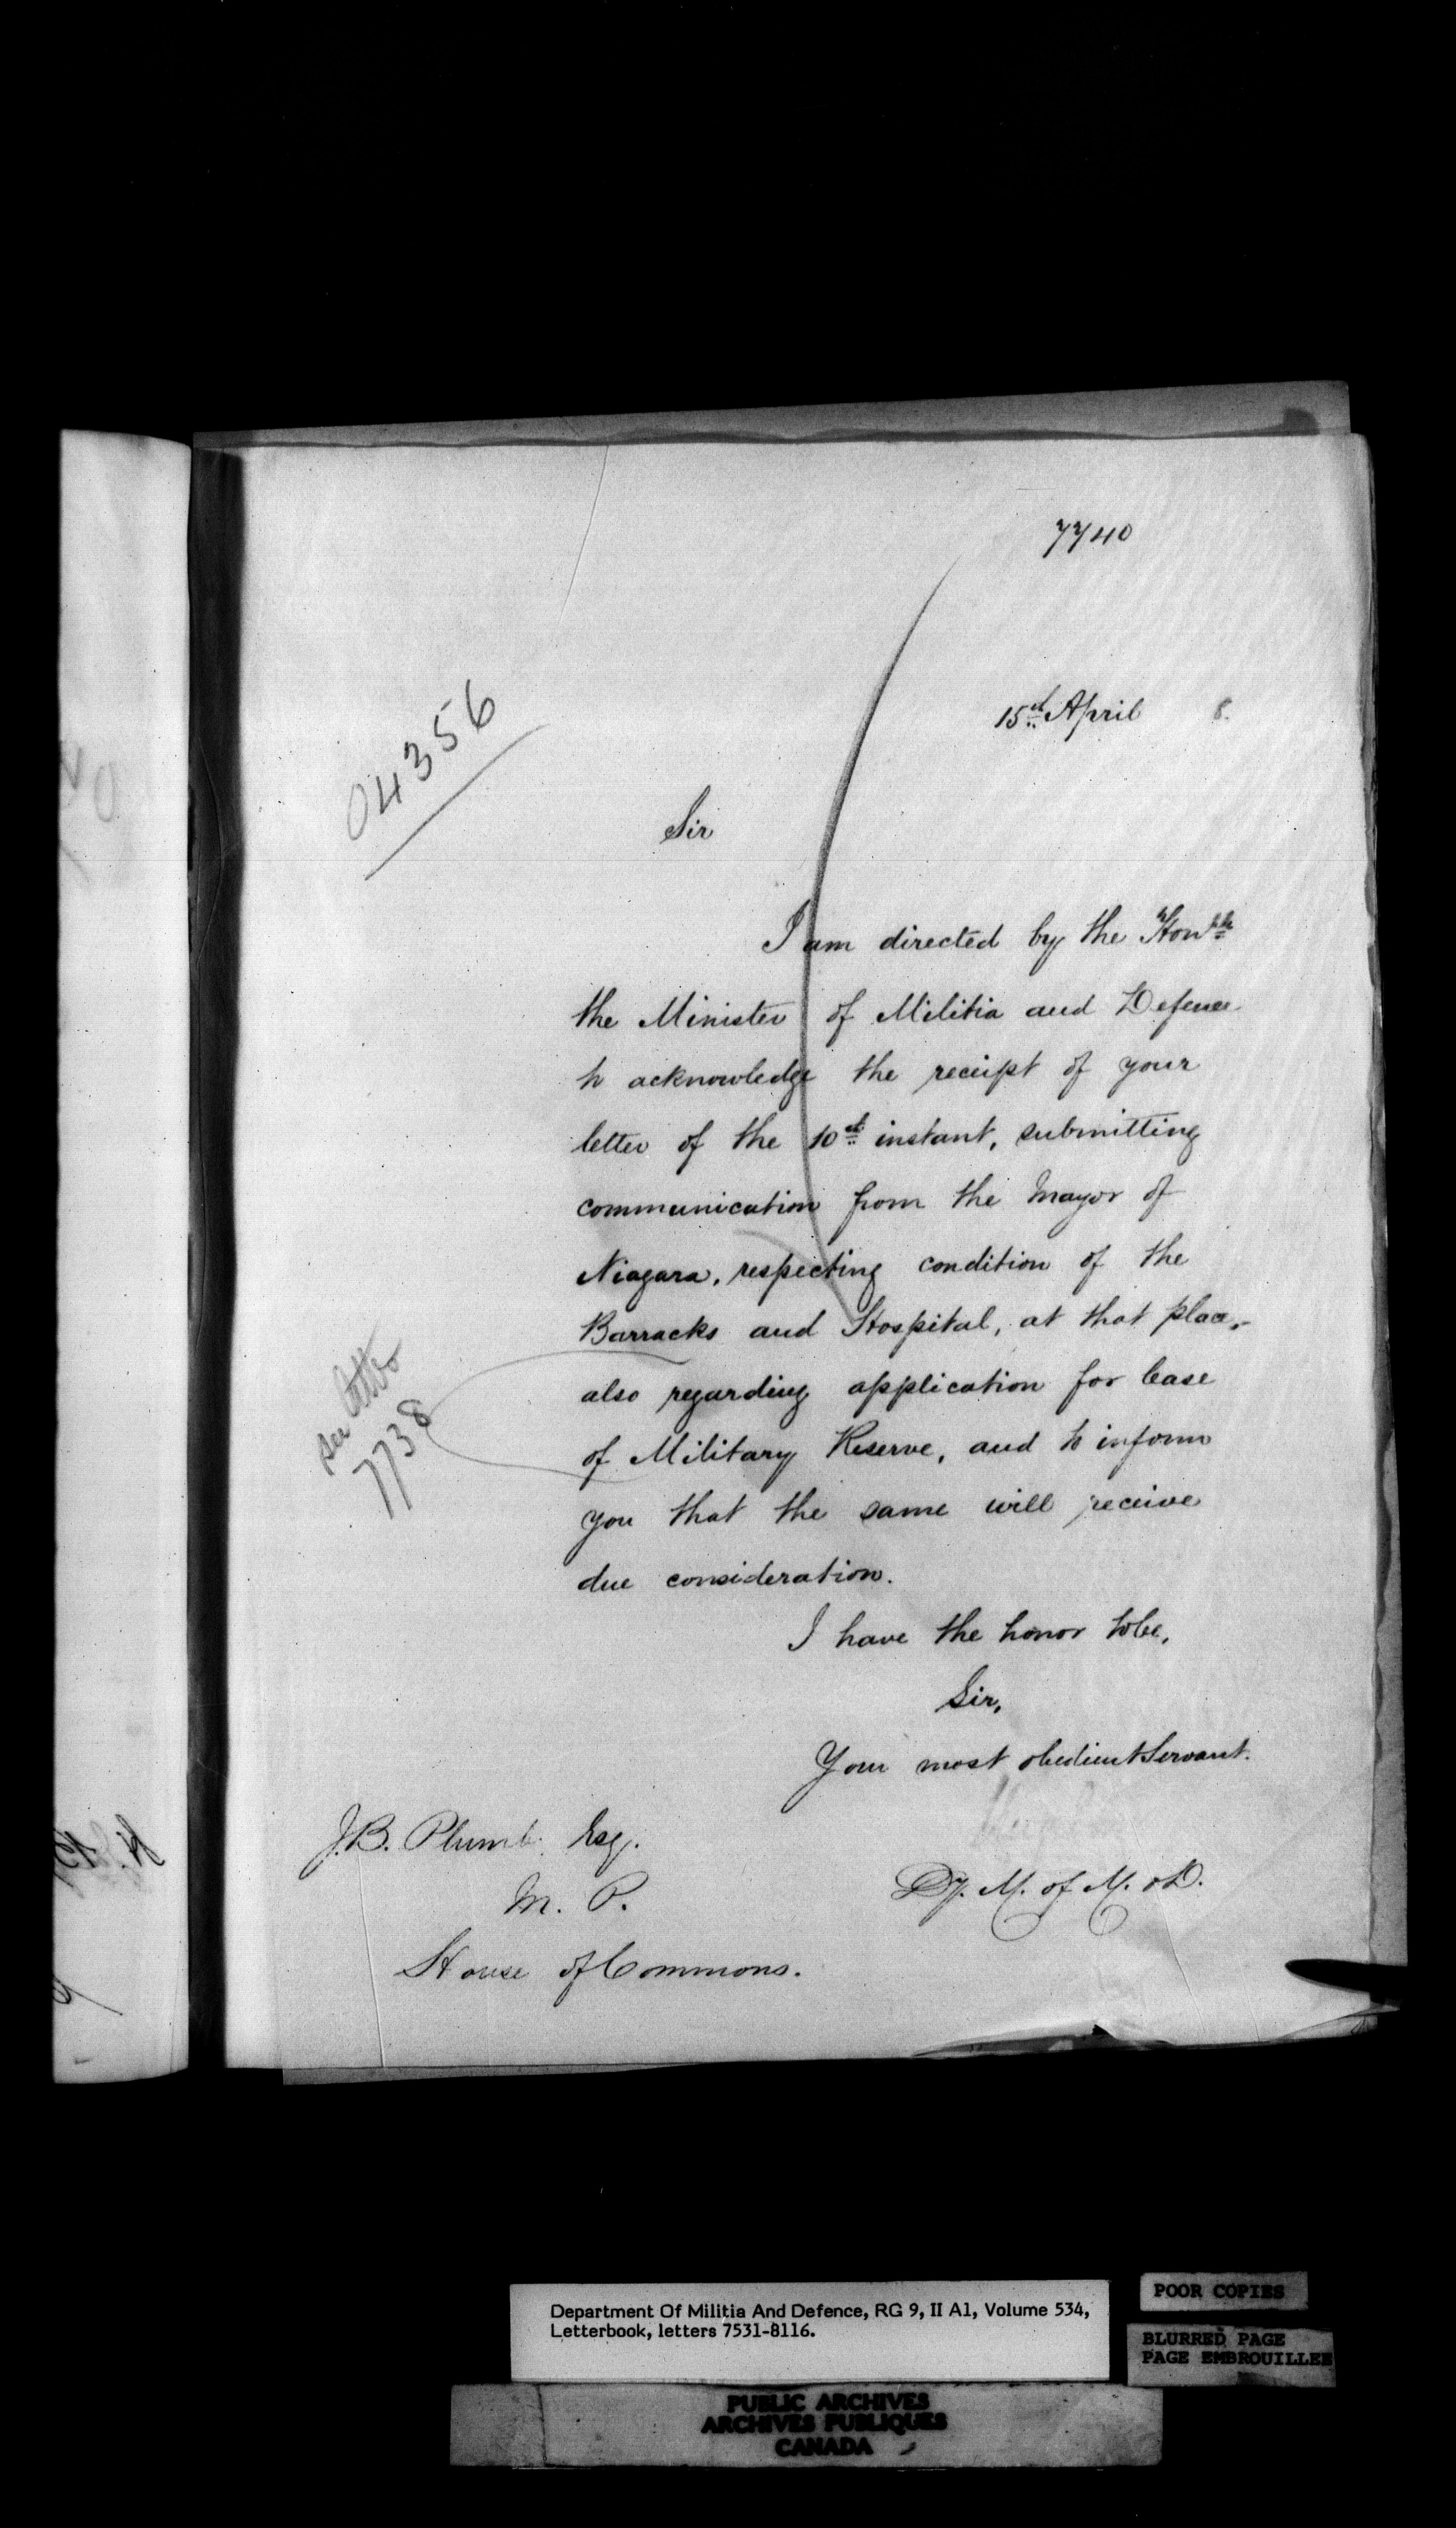 7740
04356
15th April 8.
Sir
I am directed by the Honble
the Minister of Militia and Defence
to acknowledge the receipt of your
letter of the 10th instant, submitting
communication from the Mayor of
Niagara, respecting condition of the
Barracks and Hospital, at that place,
also regarding application for lease
of Military Reserve, and to inform
you that the same will receive
due consideration.
see letter
7738
I have the honor to be,
Sir,
Your most obedient Servant.
J.B. Plumb Esq.
M. P.
House of Commons.
Dy. M. of M. & D.
Department Of Militia And Defence, RG 9, II A1, Volume 534,
Letterbook, letters 7531-8116.
POOR COPIES
BLURRED PAGE
PAGE EMBROUILLEE
PUBLIC ARCHIVES
ARCHIVES PUBLIQUES
CANADA